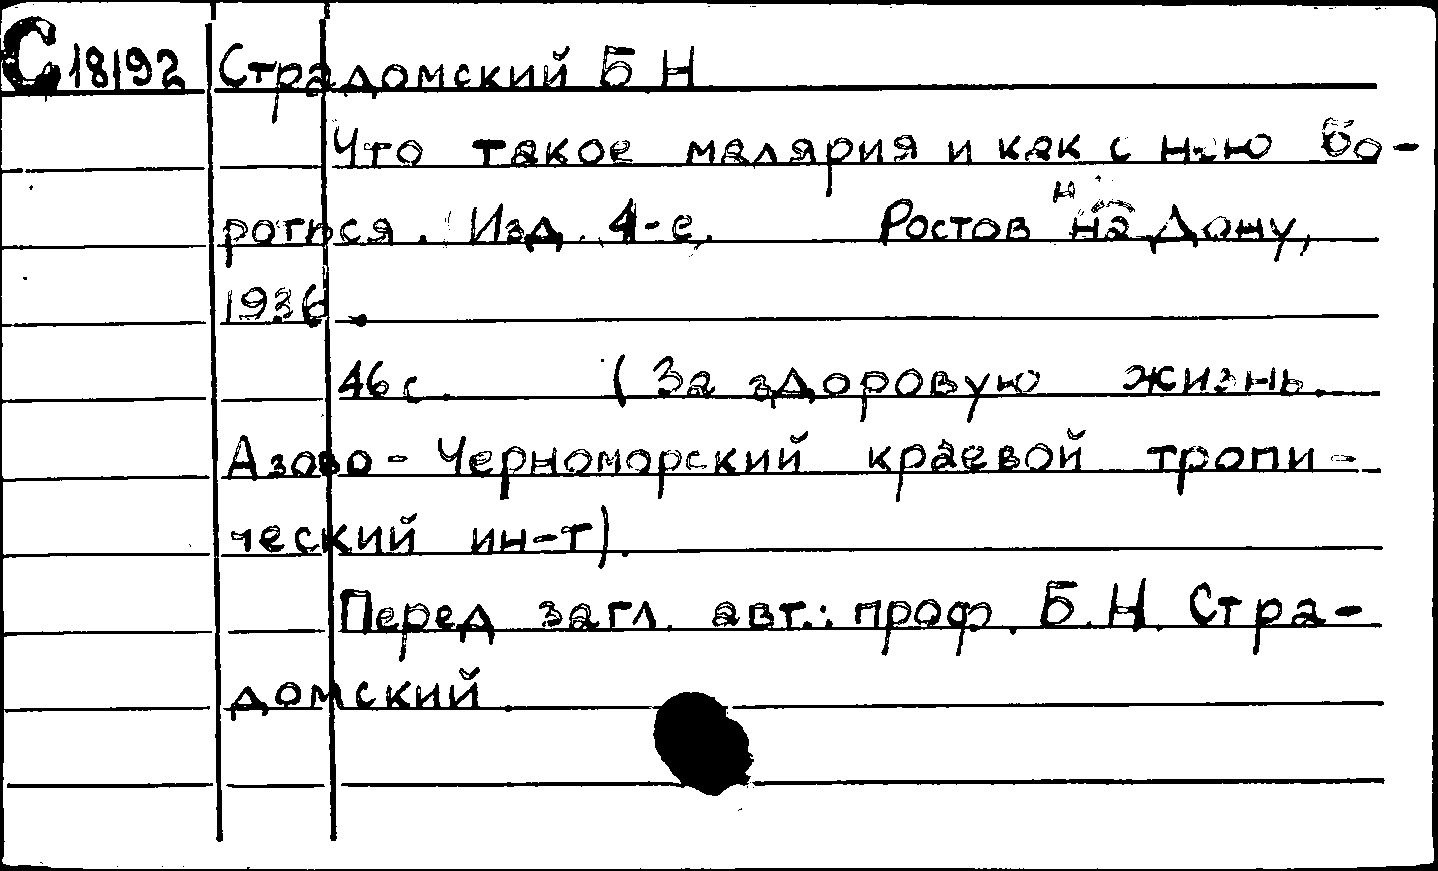 С 18192 Страдомский Б.Н.
Что такое малярия и как с нею бо-
роться. Изд. 4-е. Ростов на Дону,
1936.
46 с. (За здоровую жизнь.
Азово-Черноморский краевой тропи-
ческий ин-т).
Перед загл. авт.: проф. Б.Н. Стра-
домский.